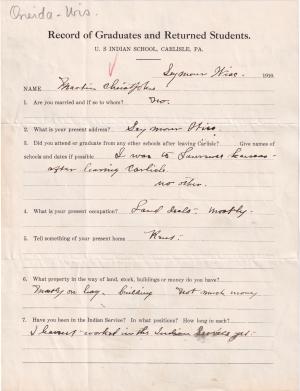 Oneida - Wis.
Record of Graduates and Returned Students.
U. S INDIAN SCHOOL, CARLISLE, PA.
Seymour Wisc. 1910.
NAME Martin
1. Are you married and if so to whom? No.
2. What is your present address? Seymour Wisc.
3. Did you attend or graduate from any other schools after leaving Carlisle? Give names of
schools and dates if possible. I was to Lawrence Kansas
after leaving Carlisle.
no other.
4. What is your present occupation? Land deals - mostly.
5. Tell something of your present home
6. What property in the way of land, stock, buildings or money do you have?
Mostly on building Not much money
7. Have you been in the Indian Service? In what positions? How long in each?
I havent worked in the Indian Service yet -